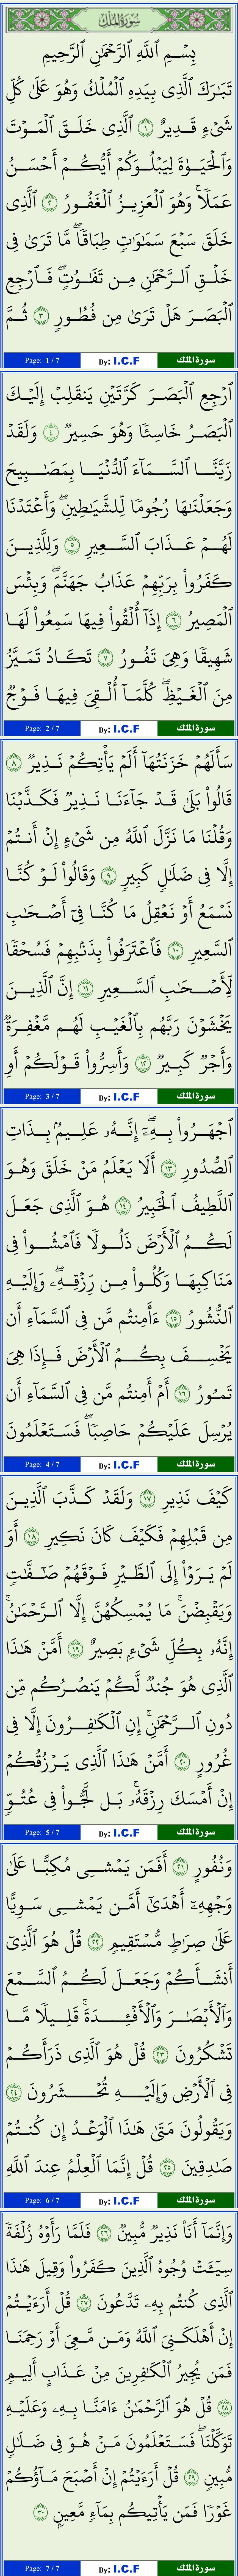 سُورَةُ المُلْكِ
بِسْمِ ٱللَّهِ ٱلرَّحْمَٰنِ ٱلرَّحِيمِ
تَبَٰرَكَ ٱلَّذِى بِيَدِهِ ٱلْمُلْكُ وَهُوَ عَلَىٰ كُلِّ
شَىْءٍ قَدِيرٌ ١ ٱلَّذِى خَلَقَ ٱلْمَوْتَ
وَٱلْحَيَوٰةَ لِيَبْلُوَكُمْ أَيُّكُمْ أَحْسَنُ
عَمَلًا ۚ وَهُوَ ٱلْعَزِيزُ ٱلْغَفُورُ ٢ ٱلَّذِى
خَلَقَ سَبْعَ سَمَٰوَٰتٍ طِبَاقًا ۖ مَّا تَرَىٰ فِى
خَلْقِ ٱلرَّحْمَٰنِ مِن تَفَٰوُتٍ ۖ فَٱرْجِعِ
ٱلْبَصَرَ هَلْ تَرَىٰ مِن فُطُورٍ ٣ ثُمَّ
Page: 1 / 7 By: I.C.F سورة الملك
ٱرْجِعِ ٱلْبَصَرَ كَرَّتَيْنِ يَنقَلِبْ إِلَيْكَ
ٱلْبَصَرُ خَاسِئًا وَهُوَ حَسِيرٌ ٤ وَلَقَدْ
زَيَّنَّا ٱلسَّمَآءَ ٱلدُّنْيَا بِمَصَٰبِيحَ
وَجَعَلْنَٰهَا رُجُومًا لِّلشَّيَٰطِينِ ۖ وَأَعْتَدْنَا
لَهُمْ عَذَابَ ٱلسَّعِيرِ ٥ وَلِلَّذِينَ
كَفَرُوا۟ بِرَبِّهِمْ عَذَابُ جَهَنَّمَ ۖ وَبِئْسَ
ٱلْمَصِيرُ ٦ إِذَآ أُلْقُوا۟ فِيهَا سَمِعُوا۟ لَهَا
شَهِيقًا وَهِىَ تَفُورُ ٧ تَكَادُ تَمَيَّزُ
مِنَ ٱلْغَيْظِ ۖ كُلَّمَآ أُلْقِىَ فِيهَا فَوْجٌ
Page: 2 / 7 By: I.C.F سورة الملك
سَأَلَهُمْ خَزَنَتُهَآ أَلَمْ يَأْتِكُمْ نَذِيرٌ ٨
قَالُوا۟ بَلَىٰ قَدْ جَآءَنَا نَذِيرٌ فَكَذَّبْنَا
وَقُلْنَا مَا نَزَّلَ ٱللَّهُ مِن شَىْءٍ إِنْ أَنتُمْ
إِلَّا فِى ضَلَٰلٍ كَبِيرٍ ٩ وَقَالُوا۟ لَوْ كُنَّا
نَسْمَعُ أَوْ نَعْقِلُ مَا كُنَّا فِىٓ أَصْحَٰبِ
ٱلسَّعِيرِ ١٠ فَٱعْتَرَفُوا۟ بِذَنۢبِهِمْ فَسُحْقًا
لِّأَصْحَٰبِ ٱلسَّعِيرِ ١١ إِنَّ ٱلَّذِينَ
يَخْشَوْنَ رَبَّهُم بِٱلْغَيْبِ لَهُم مَّغْفِرَةٌ
وَأَجْرٌ كَبِيرٌ ١٢ وَأَسِرُّوا۟ قَوْلَكُمْ أَوِ
Page: 3 / 7 By: I.C.F سورة الملك
ٱجْهَرُوا۟ بِهِۦٓ ۖ إِنَّهُۥ عَلِيمٌۢ بِذَاتِ
ٱلصُّدُورِ ١٣ أَلَا يَعْلَمُ مَنْ خَلَقَ وَهُوَ
ٱللَّطِيفُ ٱلْخَبِيرُ ١٤ هُوَ ٱلَّذِى جَعَلَ
لَكُمُ ٱلْأَرْضَ ذَلُولًا فَٱمْشُوا۟ فِى
مَنَاكِبِهَا وَكُلُوا۟ مِن رِّزْقِهِۦ ۖ وَإِلَيْهِ
ٱلنُّشُورُ ١٥ ءَأَمِنتُم مَّن فِى ٱلسَّمَآءِ أَن
يَخْسِفَ بِكُمُ ٱلْأَرْضَ فَإِذَا هِىَ
تَمُورُ ١٦ أَمْ أَمِنتُم مَّن فِى ٱلسَّمَآءِ أَن
يُرْسِلَ عَلَيْكُمْ حَاصِبًا ۖ فَسَتَعْلَمُونَ
Page: 4 / 7 By: I.C.F سورة الملك
كَيْفَ نَذِيرِ ١٧ وَلَقَدْ كَذَّبَ ٱلَّذِينَ
مِن قَبْلِهِمْ فَكَيْفَ كَانَ نَكِيرِ ١٨ أَوَ
لَمْ يَرَوْا۟ إِلَى ٱلطَّيْرِ فَوْقَهُمْ صَٰٓفَّٰتٍ
وَيَقْبِضْنَ ۚ مَا يُمْسِكُهُنَّ إِلَّا ٱلرَّحْمَٰنُ ۚ
إِنَّهُۥ بِكُلِّ شَىْءٍۭ بَصِيرٌ ١٩ أَمَّنْ هَٰذَا
ٱلَّذِى هُوَ جُندٌ لَّكُمْ يَنصُرُكُم مِّن
دُونِ ٱلرَّحْمَٰنِ ۚ إِنِ ٱلْكَٰفِرُونَ إِلَّا فِى
غُرُورٍ ٢٠ أَمَّنْ هَٰذَا ٱلَّذِى يَرْزُقُكُمْ
إِنْ أَمْسَكَ رِزْقَهُۥ ۚ بَل لَّجُّوا۟ فِى عُتُوٍّ
Page: 5 / 7 By: I.C.F سورة الملك
وَنُفُورٍ ٢١ أَفَمَن يَمْشِى مُكِبًّا عَلَىٰ
وَجْهِهِۦٓ أَهْدَىٰٓ أَمَّن يَمْشِى سَوِيًّا
عَلَىٰ صِرَٰطٍ مُّسْتَقِيمٍ ٢٢ قُلْ هُوَ ٱلَّذِىٓ
أَنشَأَكُمْ وَجَعَلَ لَكُمُ ٱلسَّمْعَ
وَٱلْأَبْصَٰرَ وَٱلْأَفْـِٔدَةَ ۖ قَلِيلًا مَّا
تَشْكُرُونَ ٢٣ قُلْ هُوَ ٱلَّذِى ذَرَأَكُمْ
فِى ٱلْأَرْضِ وَإِلَيْهِ تُحْشَرُونَ ٢٤
وَيَقُولُونَ مَتَىٰ هَٰذَا ٱلْوَعْدُ إِن كُنتُمْ
صَٰدِقِينَ ٢٥ قُلْ إِنَّمَا ٱلْعِلْمُ عِندَ ٱللَّهِ
Page: 6 / 7 By: I.C.F سورة الملك
وَإِنَّمَآ أَنَا۠ نَذِيرٌ مُّبِينٌ ٢٦ فَلَمَّا رَأَوْهُ زُلْفَةً
سِيٓـَٔتْ وُجُوهُ ٱلَّذِينَ كَفَرُوا۟ وَقِيلَ هَٰذَا
ٱلَّذِى كُنتُم بِهِۦ تَدَّعُونَ ٢٧ قُلْ أَرَءَيْتُمْ
إِنْ أَهْلَكَنِىَ ٱللَّهُ وَمَن مَّعِىَ أَوْ رَحِمَنَا
فَمَن يُجِيرُ ٱلْكَٰفِرِينَ مِنْ عَذَابٍ أَلِيمٍ
٢٨ قُلْ هُوَ ٱلرَّحْمَٰنُ ءَامَنَّا بِهِۦ وَعَلَيْهِ
تَوَكَّلْنَا ۖ فَسَتَعْلَمُونَ مَنْ هُوَ فِى ضَلَٰلٍ
مُّبِينٍ ٢٩ قُلْ أَرَءَيْتُمْ إِنْ أَصْبَحَ مَآؤُكُمْ
غَوْرًا فَمَن يَأْتِيكُم بِمَآءٍ مَّعِينٍۭ ٣٠
Page: 7 / 7 By: I.C.F سورة الملك